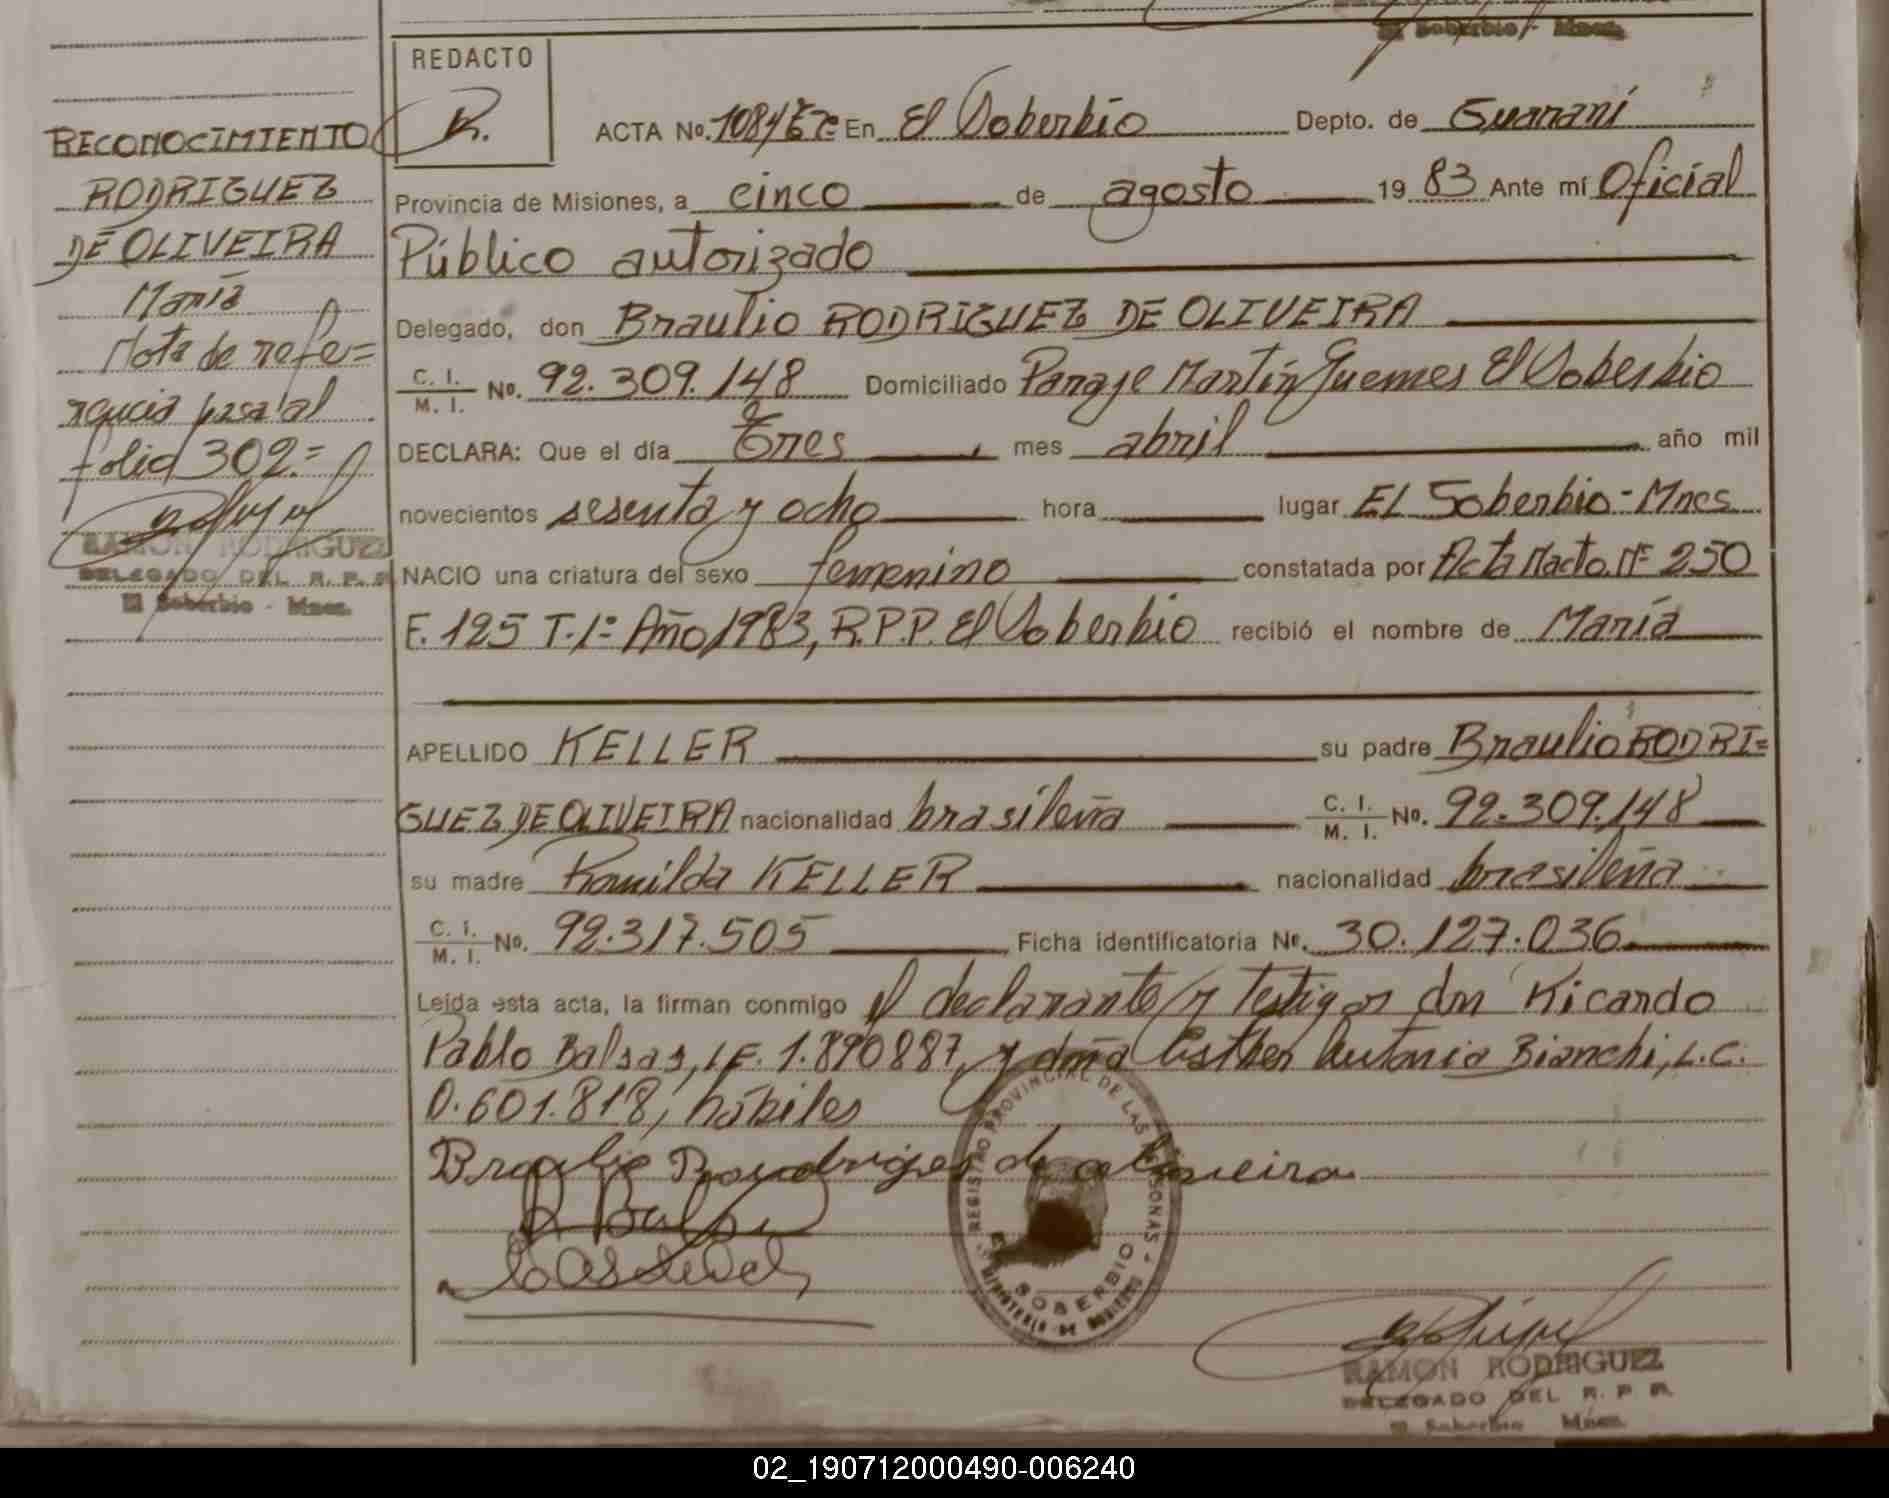 El Soberbio - Mnes.
REDACTO
R.
RECONOCIMIENTO
RODRIGUEZ
DE OLIVEIRA
María
Nota de refe=
rencia pasa al
folio 302.=
RAMON RODRIGUEZ
DELEGADO DEL R. P. P.
El Soberbio - Mnes.
ACTA No. En El Soberbio Depto. de Guaraní
Provincia de Misiones, a cinco de agosto 19 83 Ante mí Oficial
Público autorizado
Delegado, don Braulio RODRIGUEZ DE OLIVEIRA
C. I. M. I. No. 92.309.148 Domiciliado Paraje Martín Guemes El Soberbio
DECLARA: Que el día Tres mes abril año mil
novecientos sesenta y ocho hora lugar EL Soberbio - Mnes
NACIO una criatura del sexo femenino constatada por Acta Nacto. Nº 250
F. 125 T. 1º Año 1983, R.P.P. El Soberbio recibió el nombre de María
APELLIDO KELLER su padre Braulio RODRI=
GUEZ DE OLIVEIRA nacionalidad brasileña C. I. M. I. No. 92.309.148
su madre Romilda KELLER nacionalidad brasileña
C. I. M. I. No. 92.317.505 Ficha identificatoria No. 30.127.036
Leída esta acta, la firman conmigo el declarante y Testigos don Ricardo
Pablo Balsas, L.E. 1.890887, y doña Esther Antonia Bianchi, L.C.
0.601.818, hábiles
Braulio Roudriges de oliveira
R Balsa
REGISTRO PROVINCIAL DE LAS PERSONAS
EL SOBERBIO
MINISTERIO DE GOBIERNO
RAMON RODRIGUEZ
DELEGADO DEL R. P. P.
El Soberbio Mnes.
02_190712000490-006240